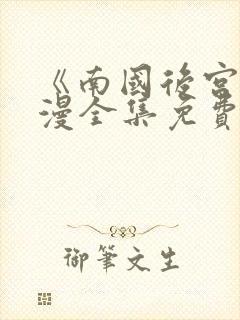 《南國後宮
漫全集免費
御筆文生